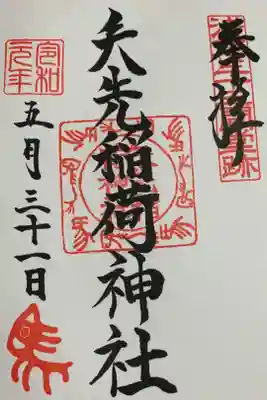 奉拝
矢先稲荷神社
令和
元年
五月三十一日